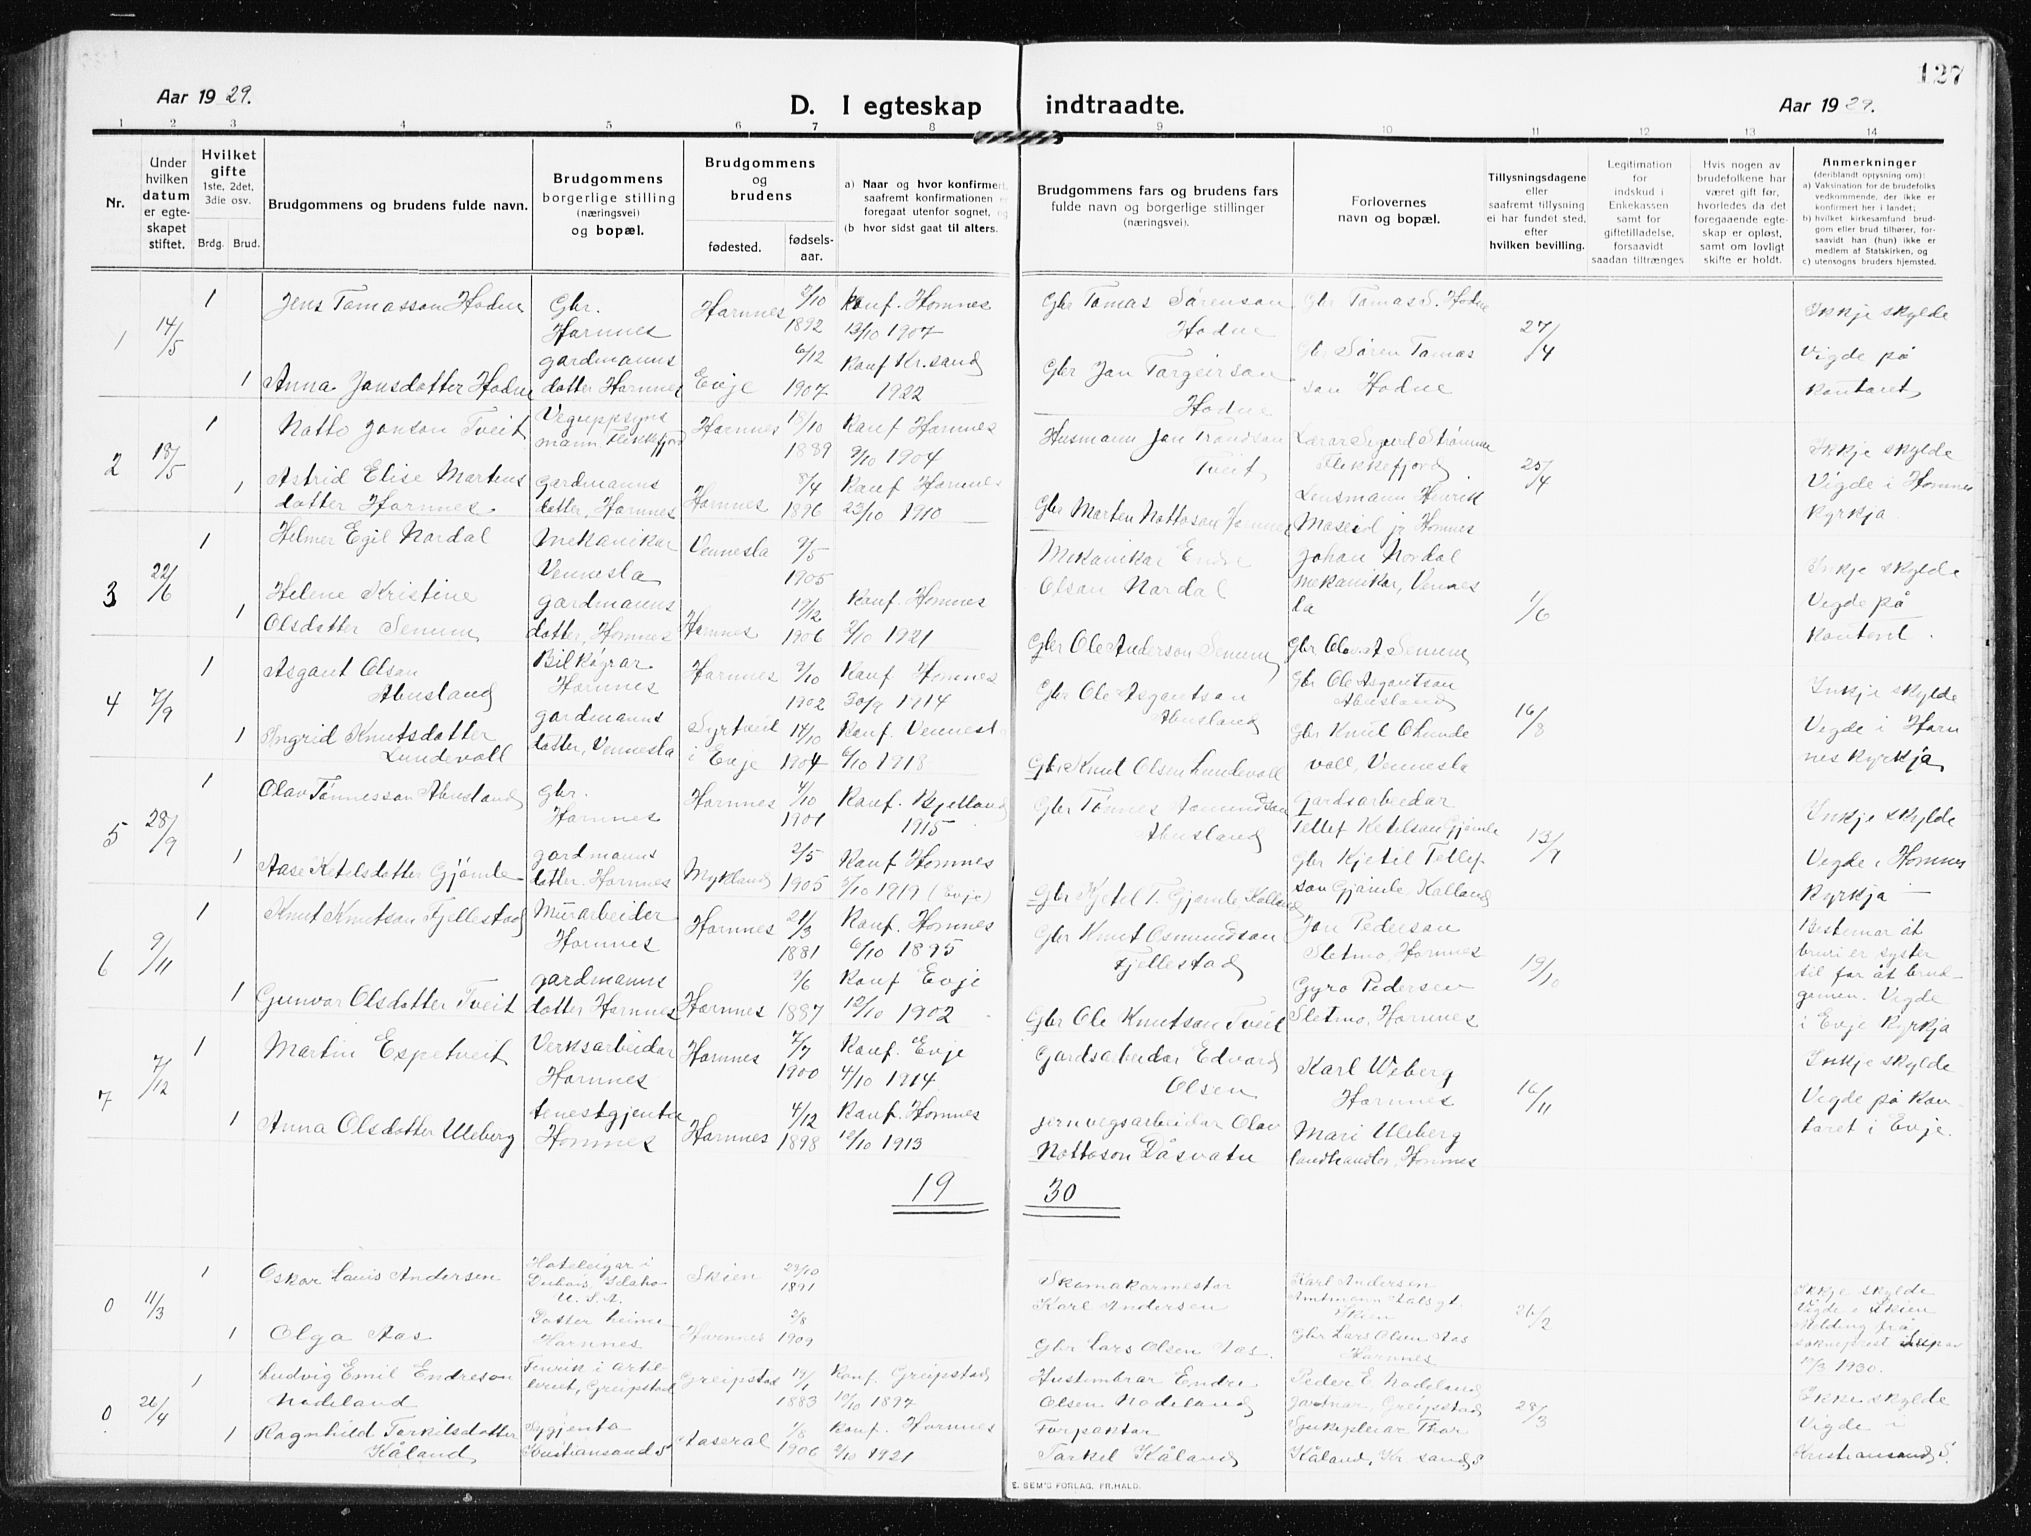 127
Aar 1929.
D. I egteskap indtraadte.
Aar 1929.
1 2 3 4 5 6 7 8 9 10 11 12 13 14
Nr.
Under hvilken datum er egteskapet stiftet.
Hvilket gifte 1ste, 2det, 3die osv.
Brdg. Brud.
Brudgommens og brudens fulde navn.
Brudgommens borgerlige stilling (næringsvei) og bopæl.
Brudgommens og brudens
fødested. fødselsaar.
a) Naar og hvor konfirmert, saafremt konfirmationen er foregaat utenfor sognet, og
(b hvor sidst gaat til alters.
Brudgommens fars og brudens fars fulde navn og borgerlige stillinger (næringsvei).
Forlovernes navn og bopæl.
Tillysningsdagene eller saafremt tillysning ei har fundet sted, efter hvilken bevilling.
Legitimation for indskud i Enkekassen samt for giftetilladelse, forsaavidt saadan tiltrænges
Hvis nogen av brudefolkene har været gift før, hvorledes da det foregaaende egteskap er opløst, samt om lovligt skifte er holdt.
Anmerkninger
(deriblandt oplysning om):
a) Vaksination for de brudefolks vedkommende, der ikke er konfirmert her i landet;
b) hvilket kirkesamfund brudgom eller brud tilhører, forsaavidt han (hun) ikke er medlem af Statskirken, og
c) utensogns bruders hjemsted.
1 14/5 1 Jens Tomasson Hodne Gbr. Hornnes Hornnes 2/10 1892 konf. Hornnes 13/10 1907 Gbr Tomas Sørenson Hodne Gbr Tomas S. Hodne 27/4 Ikkje skylde
1 Anna Jonsdotter Hodne gardmanns dotter Hornnes Evje 6/12 1907 Konf Kr.sand 1922 Gbr Jon Torgeirson Hodne Gbr Søren Tomasson Hodne Vigde på kontoret
2 18/5 1 Notto Jonson Tveit Veguppsynsmann, Flekkefjord Hornnes 18/10 1889 Konf Hornnes 9/10 1904 Husmann Jon Trondson Tveit Lærar Sigurd Strømme Flekkefjord 25/4 Ikkje skylde
1 Astrid Elise Martensdotter Hornnes gardmanns dotter, Hornnes Hornnes 8/4 1896 Konf Hornnes 23/10 1910 Gbr Marten Nottoson Hornnes Lensmann Henrik jr Hornnes Vigde i Hornnes kyrkja.
3 22/6 1 Helmer Egil Nordal Mekanikar Vennesla Vennesla 9/5 1905 Mekanikar Endre Olsen Nordal Johan Nordal mekanikar, Vennesla 1/6 Inkje skylde
1 Helene Kristine Olsdotter Senum gardmanns dotter, Hornnes Hornnes 19/12 1906 Konf. Hornnes 2/10 1921 Gbr Ole Anderson Senum Gbr Olav A Senum Vigde på kontoret.
4 7/9 1 Asgaut Olson Abusland Bilkøyrar Hornnes Hornnes 9/10 1902 Konf Hornnes 30/9 1914 Gbr Ole Asgautson Abusland Gbr Ole Asgautson Abusland 16/8 Inkje skylde
1 Ingrid Knutsdotter Lundevoll gardmanns dotter, Vennesla Syrtveit i Evje 14/10 1904 Konf. Vennesla 6/10 1918 Gbr Knut Olsen Lundevoll Gbr Knut O Lundevoll, Vennesla Vigde i Hornnes kyrkja
5 28/9 1 Olav Tønnesson Abusland gbr. Hornnes Hornnes 4/10 1901 Konf. Bjelland 1915 Gbr Tønnes Aamundson Abusland Gardsarbeidar Tellef Ketelson Gjømle 13/9 Inkje skylde
1 Aase Ketelsdotter Gjømle gardmanns dotter. Hornnes Mykland 2/5 1905 Konf Hornnes 5/10 1919 (Evje) Gbr Kjetel T. Gjømle Kalland Gbr Kjetil Tellefson Gjømle Kalland Vigde i Hornnes Kyrkja
6 9/11 1 Knut Knutson Fjellestad Murarbeider Hornnes Hornnes 21/3 1881 Konf. Hornnes 6/10 1895 Gbr Knut Osmundson Fjellestad Jon Pederson Sletmo, Hornnes 19/10 Bestemor åt bruri er syster til far åt brudgomen. Vigde i Evje kyrkja
1 Gunvor Olsdotter Tveit gardmanns dotter Hornnes Hornnes 9/6 1887 Konf Evje 12/10 1902 Gbr Ole Knutson Tveit Gyro Pedersen Sletmo, Hornnes
7 7/12 1 Martin Espetveit Verksarbeidar Hornnes Hornnes 7/7 1900 Konf. Evje 4/10 1914 Gardsarbeidar Edvard Olsen Karl Weberg Hornnes 16/11 Inkje skylde
1 Anna Olsdotter Uleberg tenestgjenta Hornnes Hornnes 4/12 1898 Konf. Hornnes 12/10 1913 Jernvegsarbeidar Olav Nottoson Dåsvatn Mari Uleberg landhandler, Hornnes Vigde på kontoret i Evje.
19 30
0 11/3 1 Oskar Louis Andersen Hoteleigar i Dubois, Idaho U.S.A. Skien 23/10 1891 Skomakarmestar Karl Andersen Karl Andersen Amtmann Aalsgt. Skien 26/2 Ikkje skylde
1 Olga Aas Dotter heime Hornnes Hornnes 2/8 1909 Gbr Lars Olsen Aas. Gbr Lars Olsen Aas Hornnes Vigde i Skien Melding frå sokneprest 17/3 1930.
0. 26/4 1 Ludvig Emil Endreson Nodeland Greipstad Greipstad 19/1 1883 Konf. Greipstad 10/10 1897 Hustimbrar Endre Olsen Nodeland Peder E. Nodeland Gartnar, Greipstad 28/3 Ikke skylde
1 Ragnhild Torkilsdotter Kåland Sygjenta Kristiansand S Aaseral 1/8 1906 konf. Hornnes 2/10 1921 Forpaktar Torkel Kåland Sjukepleiar Thor Kåland, Kr sand S Vigde i Kristiansand S.
E. SEM'S FORLAG, FR.HALD.